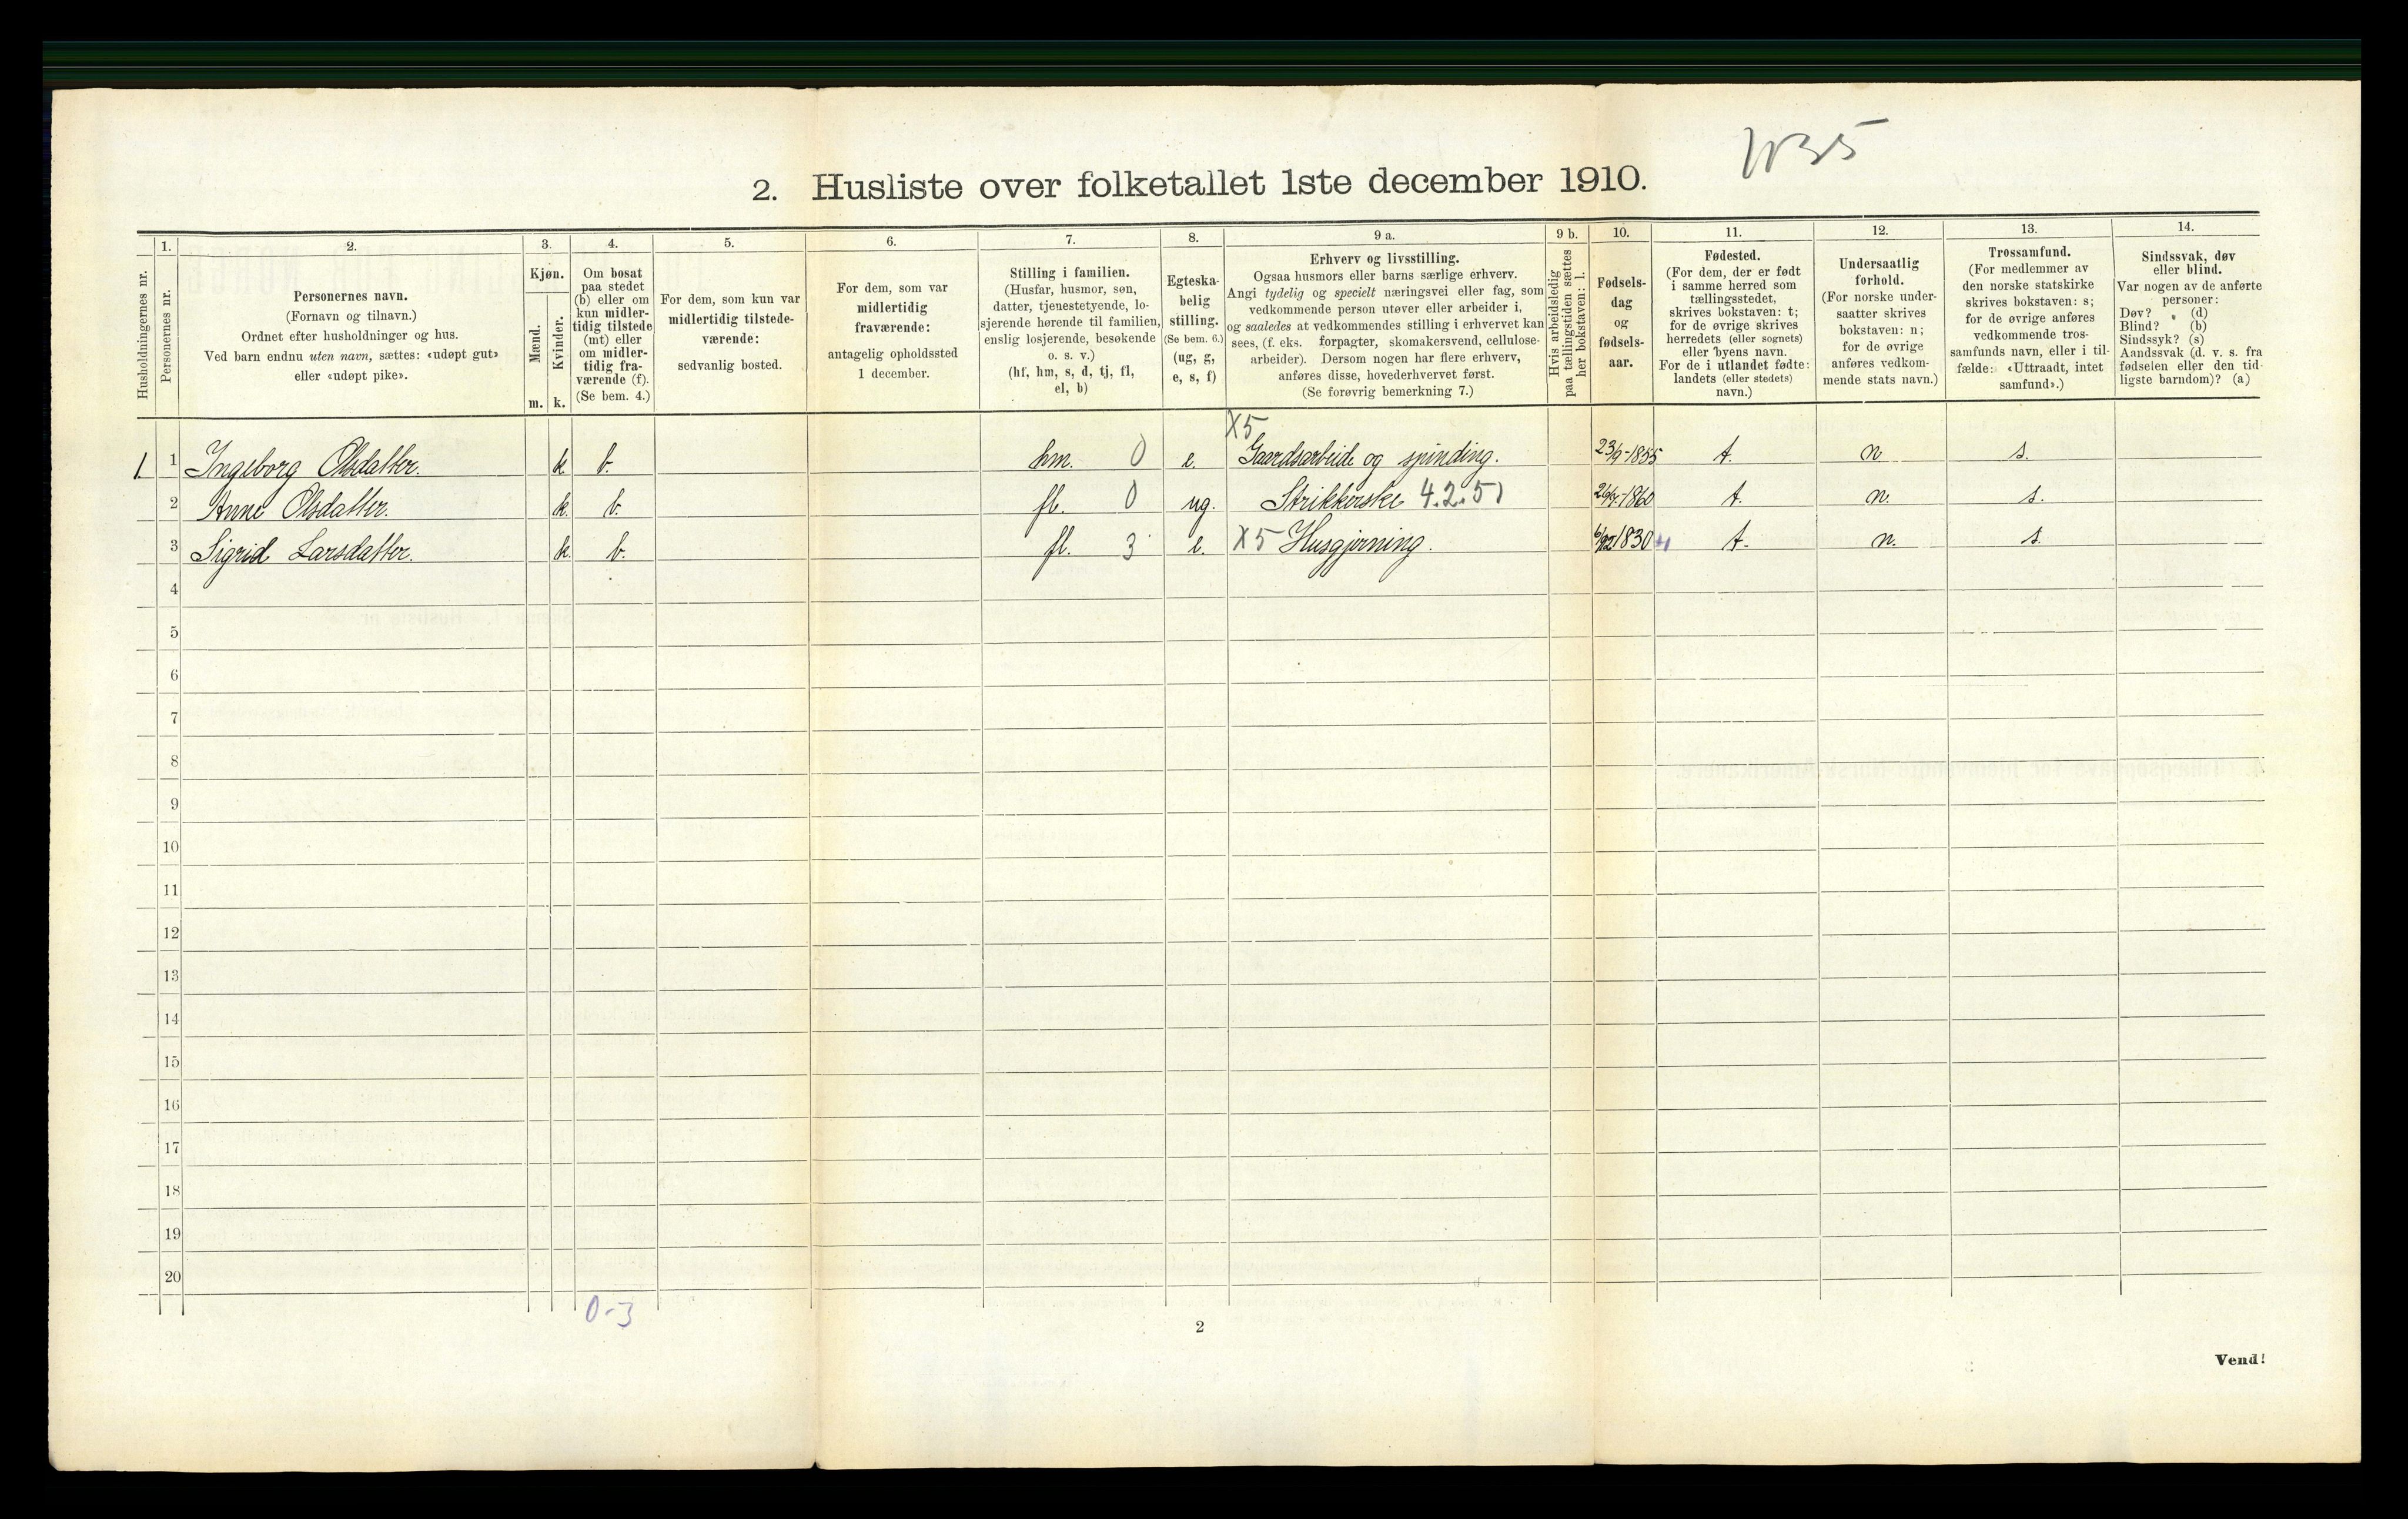 2. Husliste over folketallet 1ste december 1910.
Husholdningernes nr.
1.
Personernes nr.
2.
Personernes navn.
(Fornavn og tilnavn.)
Ordnet efter husholdninger og hus.
Ved barn endnu uten navn, sættes: «udøpt gut»
eller «udøpt pike».
3.
Kjøn.
Mænd.
m.
Kvinder.
k.
4.
Om bosat
paa stedet
(b) eller om
kun midler-
tidig tilstede
(mt) eller
om midler-
tidig fra-
værende (f).
(Se bem. 4.)
5.
For dem, som kun var
midlertidig tilstede-
værende:
sedvanlig bosted.
6.
For dem, som var
midlertidig
fraværende:
antagelig opholdssted
1 december.
7.
Stilling i familien.
(Husfar, husmor, søn,
datter, tjenestetyende, lo-
sjerende hørende til familien,
enslig losjerende, besøkende
o. s. v.)
(hf, hm, s, d, tj, fl,
el, b)
8.
Egteska-
belig
stilling.
(Se bem. 6.)
(ug, g,
e, s, f)
9 a.
Erhverv og livsstilling.
Ogsaa husmors eller barns særlige erhverv.
Angi tydelig og specielt næringsvei eller fag, som
vedkommende person utøver eller arbeider i,
og saaledes at vedkommendes stilling i erhvervet kan
sees, (f. eks. forpagter, skomakersvend, cellulose-
arbeider). Dersom nogen har flere erhverv,
anføres disse, hovederhvervet først.
(Se forøvrig bemerkning 7.)
9 b.
Hvis arbeidsledig
paa tællingstiden sættes
her bokstaven: l.
10.
Fødsels-
dag
og
fødsels-
aar.
11.
Fødested.
(For dem, der er født
i samme herred som
tællingsstedet,
skrives bokstaven: t;
for de øvrige skrives
herredets (eller sognets)
eller byens navn.
For de i utlandet fødte:
landets (eller stedets)
navn.)
12.
Undersaatlig
forhold.
(For norske under-
saatter skrives
bokstaven: n;
for de øvrige
anføres vedkom-
mende stats navn.)
13.
Trossamfund.
(For medlemmer av
den norske statskirke
skrives bokstaven: s;
for de øvrige anføres
vedkommende tros-
samfunds navn, eller i til-
fælde: «Uttraadt, intet
samfund».)
14.
Sindssvak, døv
eller blind.
Var nogen av de anførte
personer:
Døv? (d)
Blind? (b)
Sindssyk? (s)
Aandssvak (d. v. s. fra
fødselen eller den tid-
ligste barndom)? (a)
X5
1. 1 Ingeborg Olsdatter. k. b. hm. 0 e. Gaardsarbeide og spinding. 23/9-1855 t. n s.
2 Anne Olsdatter. k. b. fl. 0 ug. Strikkerske 4.2.51 1860 t. n. s.
3 Sigrid Larsdatter. k. b. fl. 3 e. X5 Husgjerning. 1830 t. n. s.
4
5
6
7
8
9
10
11
12
13
14
15
16
17
18
19
20
0-3
2
Vend!